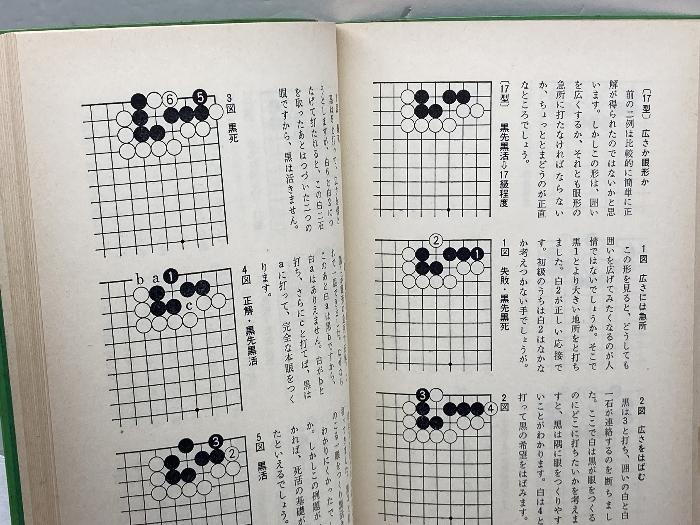 〔17型〕 広さか眼形か
前の二例は比較的に簡単に正
解が得られたのではないかと思
います。しかしこの形は、囲い
を広くするか、それとも眼形の
急所に打たなければならない
か、ちょっととまどうのが正直
なところでしょう。
〔17型〕 黒先黒活⇨17級程度
1図 広さには急所
この形を見ると、どうしても
囲いを広げてみたくなるのが人
情ではないでしょうか。そこで
黒1とより大きい地所をと打ち
ました。白2が正しい応接で
す。初級のうちは白2はなかな
か考えつかない手でしょうが。
1図 失敗・黒先黒死
②
1
2図 広さをはばむ
黒は3と打ち、囲いの白と白
一石が連絡するのを断ちまし
た。ここで白は黒が眼をつくる
のにどこに打ちたいかを考えま
すと、黒は隅に眼をつくりやす
いことがわかります。白は4と
打って黒の希望をはばみます。
2図
3
④
なげて打たれると、この白二石
を取ったあとはつづいた二つの
眼ですから、黒は活きません。
3図 黒死
⑥
5
このあと白aは黒bですから、
白aはありえません。白がbと
打ち、さらにcと打てば、黒は
aに打って、完全な本眼をつく
ります。
4図 正解・黒先黒活
b
a
1
c
わかりにくかったで
か。しかしこの例題が
かれば、死活の基礎が
たといえるでしょう。
5図 黒活
3
②